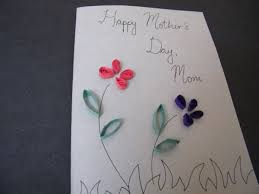 Happy Mother's
Day,
Mom